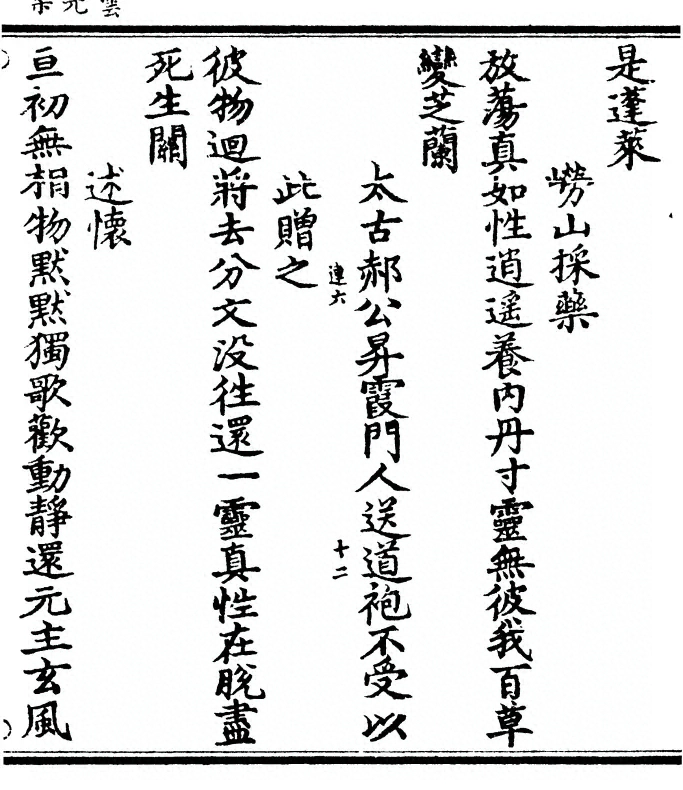 是蓬萊
嶗山採藥
放蕩真如性逍遥養内丹寸靈無彼我百草
變芝蘭
太古郝公昇霞門人送道袍不受以
連六
十二
此贈之
彼物迴將去分文没徃還一靈真性在脱盡
死生關
述懷
亘初無狷物默默獨歌歡動靜還元主玄風